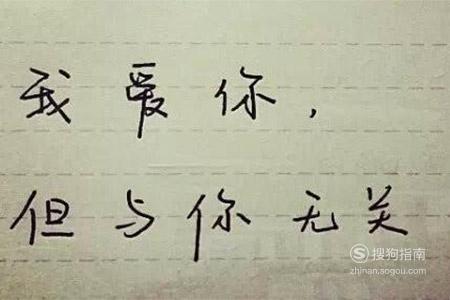 我爱你，
但与你无关
搜狗指南
zhinan.sogou.com